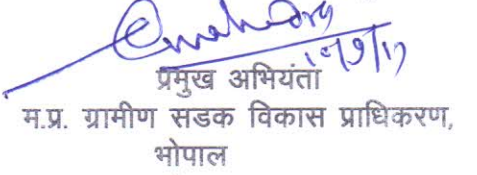 प्रमुख अभियंता
म.प्र. ग्रामीण सडक विकास प्राधिकरण,
भोपाल